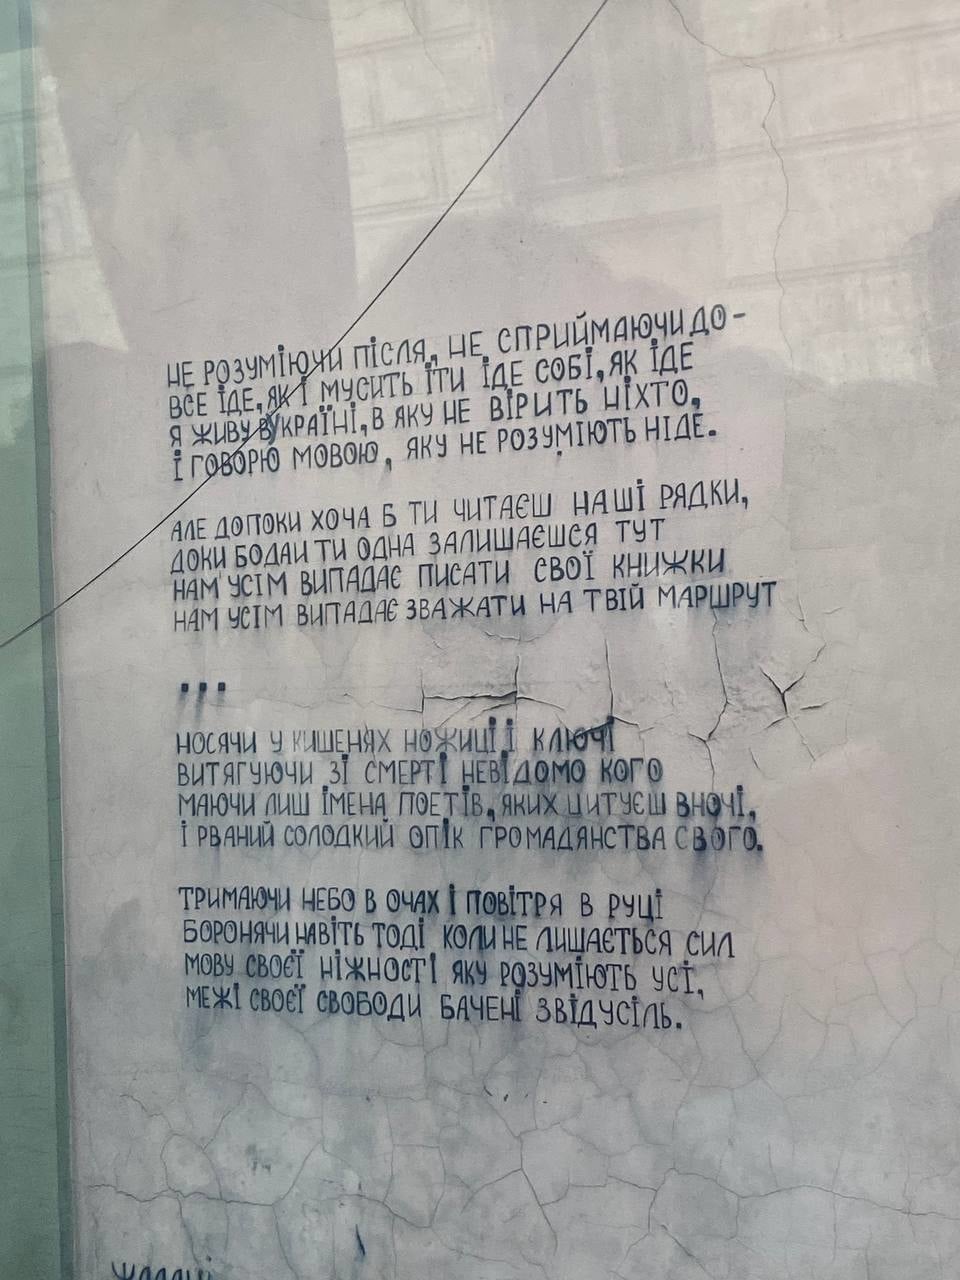 НЕ РОЗУМІЮЧИ ПІСЛЯ, НЕ СПРИЙМАЮЧИ ДО -
ВСЕ ІДЕ, ЯК І МУСИТЬ ІТИ ІДЕ СОБІ, ЯК ІДЕ
Я ЖИВУ В УКРАЇНІ, В ЯКУ НЕ ВІРИТЬ НІХТО,
І ГОВОРЮ МОВОЮ, ЯКУ НЕ РОЗУМІЮТЬ НІДЕ.
АЛЕ ДОПОКИ ХОЧА Б ТИ ЧИТАЄШ НАШІ РЯДКИ,
ДОКИ БОДАЙ ТИ ОДНА ЗАЛИШАЄШСЯ ТУТ
НАМ УСІМ ВИПАДАЄ ПИСАТИ СВОЇ КНИЖКИ
НАМ УСІМ ВИПАДАЄ ЗВАЖАТИ НА ТВІЙ МАРШРУТ
...
НОСЯЧИ У КИШЕНЯХ НОЖИЦІ І КЛЮЧІ
ВИТЯГУЮЧИ ЗІ СМЕРТІ НЕВІДОМО КОГО
МАЮЧИ ЛИШ ІМЕНА ПОЕТІВ, ЯКИХ ЦИТУЄШ ВНОЧІ,
І РВАНИЙ СОЛОДКИЙ ОПІК ГРОМАДЯНСТВА СВОГО.
ТРИМАЮЧИ НЕБО В ОЧАХ І ПОВІТРЯ В РУЦІ
БОРОНЯЧИ НАВІТЬ ТОДІ КОЛИ НЕ ЛИШАЄТЬСЯ СИЛ
МОВУ СВОЄЇ НІЖНОСТІ ЯКУ РОЗУМІЮТЬ УСІ,
МЕЖІ СВОЄЇ СВОБОДИ БАЧЕНІ ЗВІДУСІЛЬ.